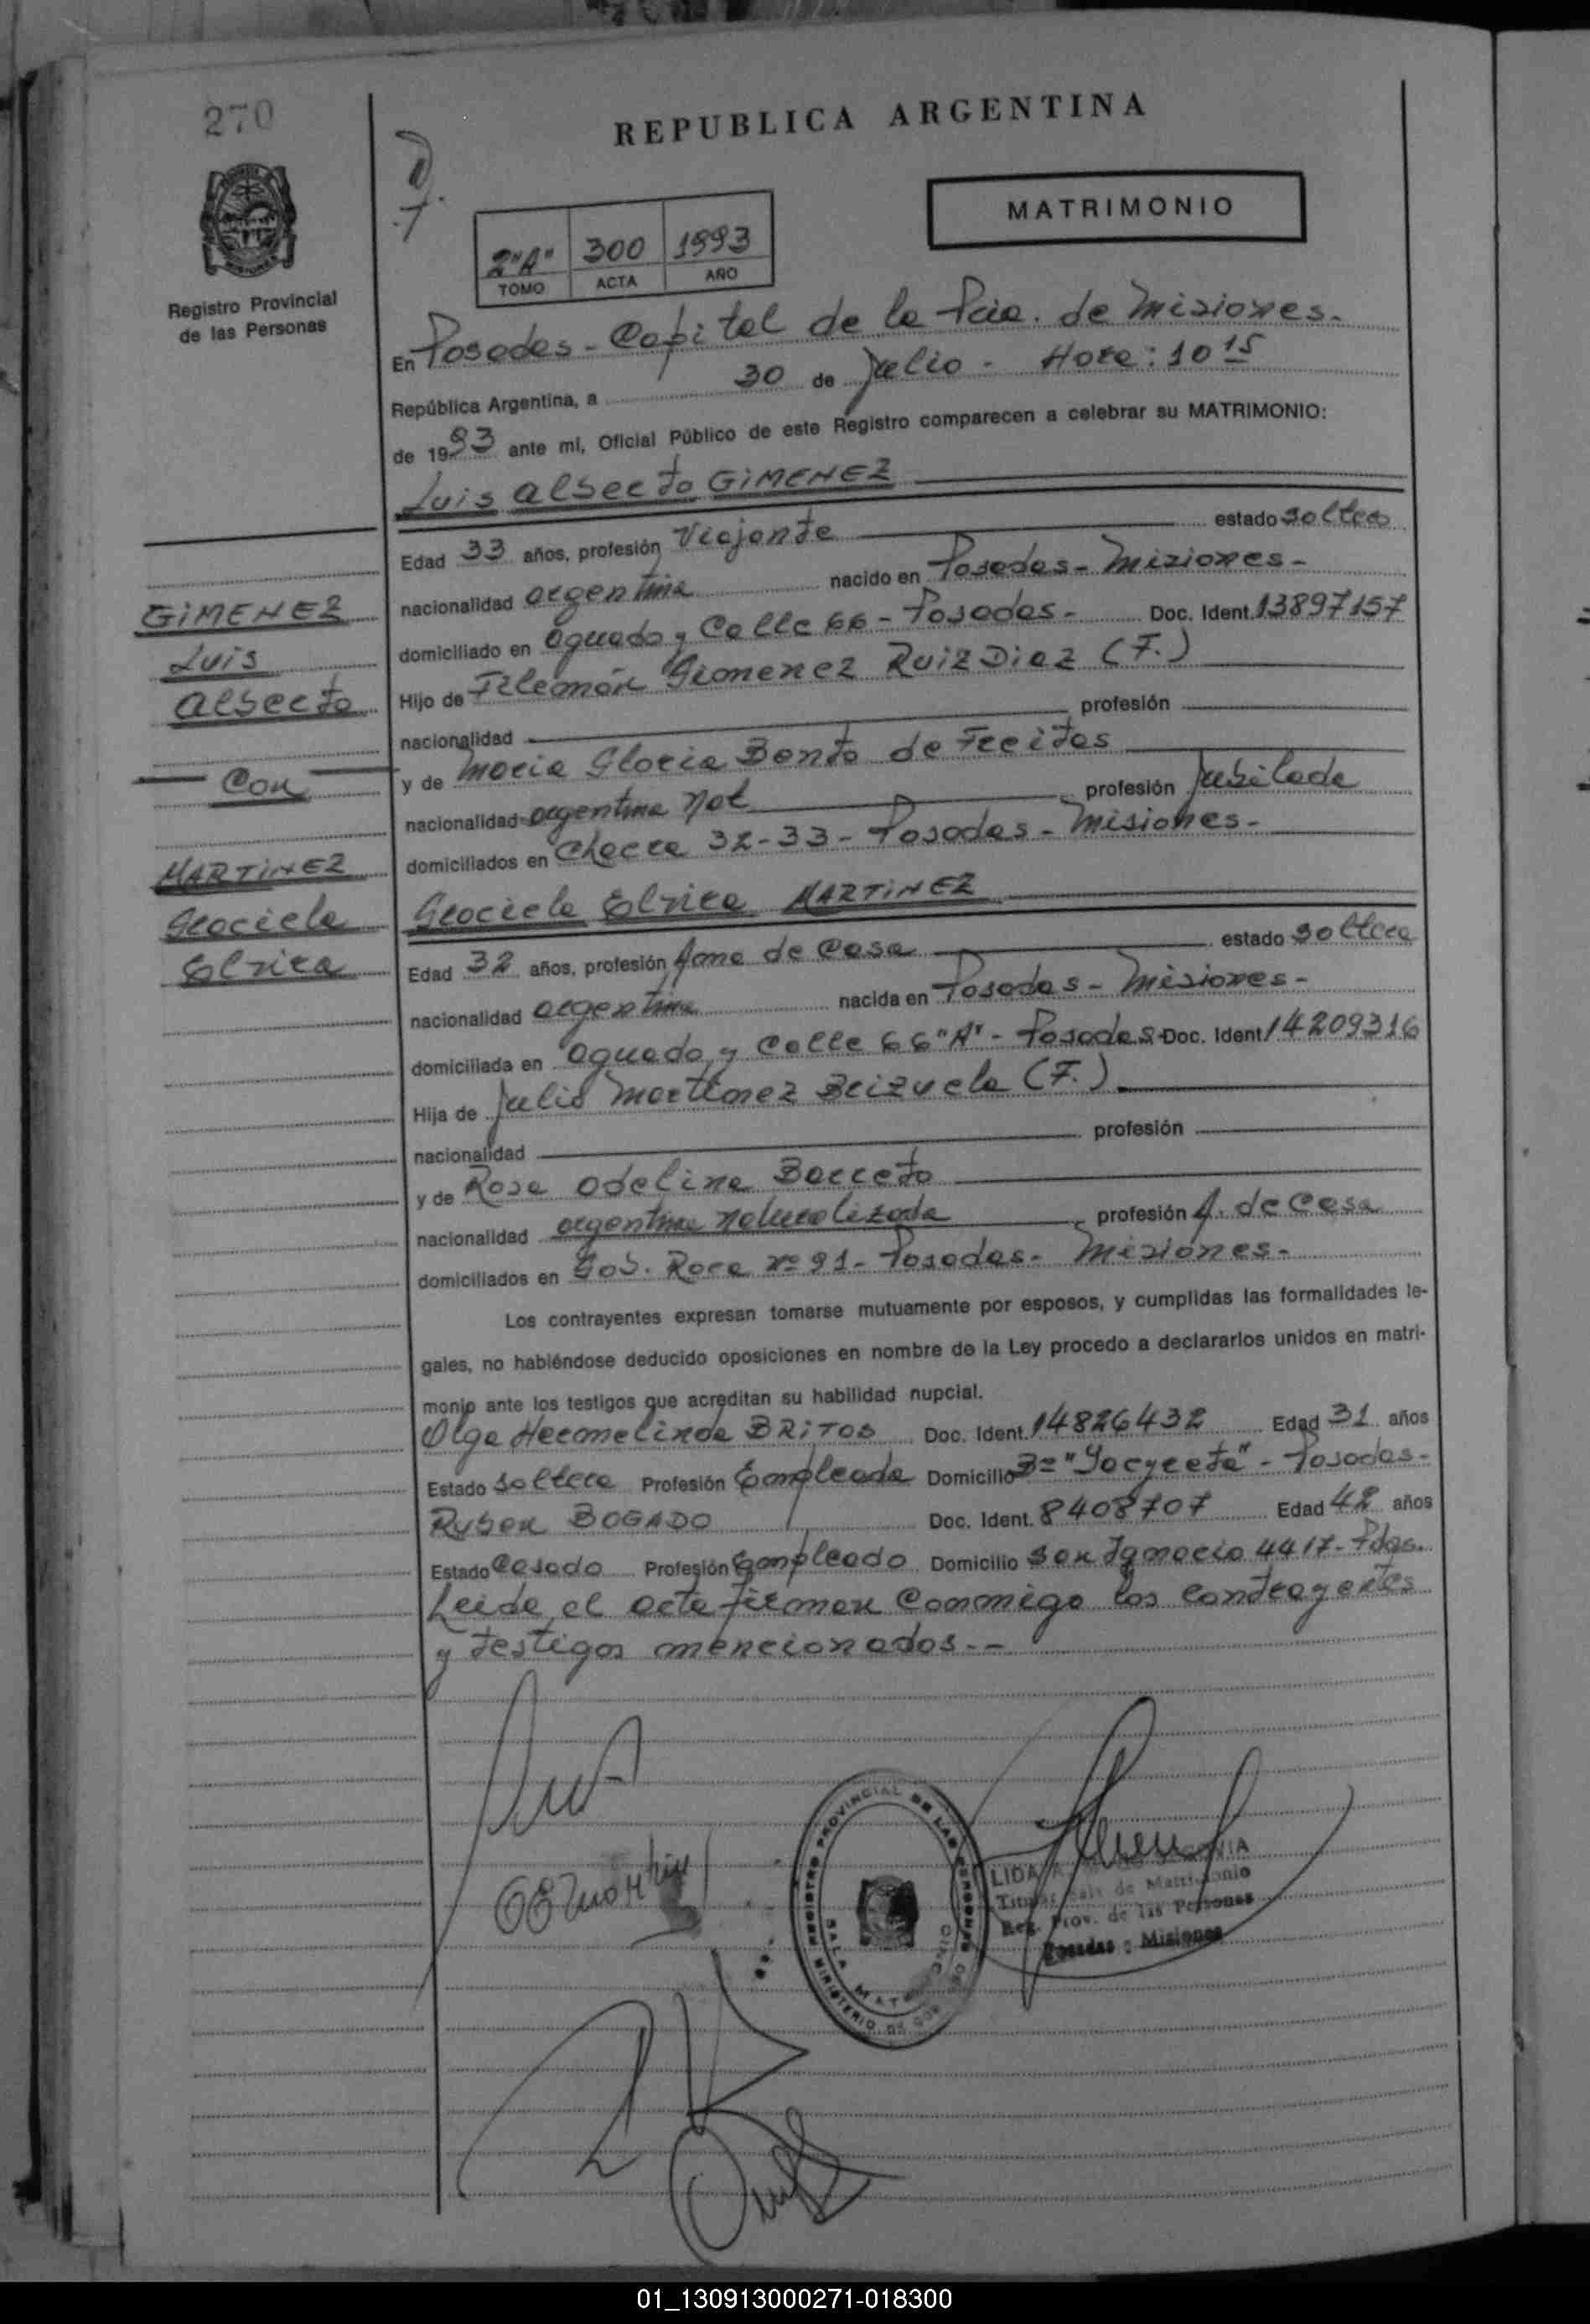 270
REPUBLICA ARGENTINA
MATRIMONIO
2"A" 300 1993
TOMO ACTA AÑO
Registro Provincial
de las Personas
En Posadas - Capital de la Pcia. de Misiones.
República Argentina, a 30 de Julio - Hora: 10 15
de 1993 ante mí, Oficial Público de este Registro comparecen a celebrar su MATRIMONIO:
Luis Alberto GIMENEZ
Edad 33 años, profesión Viajante estado soltero
nacionalidad argentina nacido en Posadas - Misiones -
domiciliado en Aguado y Calle 66 - Posadas - Doc. Ident. 13897157
Hijo de Filemón Gimenez Ruiz Diaz (F.)
nacionalidad profesión
y de Maria Gloria Bento de Freitas
nacionalidad argentina nat profesión Jubilada
domiciliados en Chacra 32-33 - Posadas - Misiones -
GIMENEZ
Luis
Alberto
Con
MARTINEZ
Graciela
Elvira
Graciela Elvira MARTINEZ
Edad 32 años, profesión Ama de Casa estado soltera
nacionalidad argentina nacida en Posadas - Misiones -
domiciliada en Aguado y Calle 66 "A" - Posadas - Doc. Ident. 14209316
Hija de Julio Martinez Brizuela (F.)
nacionalidad profesión
y de Rosa Adelina Barreto
nacionalidad argentina naturalizada profesión A. de Casa
domiciliados en Gob. Roca nº 91 - Posadas - Misiones -
Los contrayentes expresan tomarse mutuamente por esposos, y cumplidas las formalidades le-
gales, no habiéndose deducido oposiciones en nombre de la Ley procedo a declararlos unidos en matri-
monio ante los testigos que acreditan su habilidad nupcial.
Olga Hermelinda BRITOS Doc. Ident. 14826432 Edad 31 años
Estado soltera Profesión Empleada Domicilio Bº "Yacyreta" - Posadas -
Ruben BOGADO Doc. Ident. 8408707 Edad 42 años
Estado Casado Profesión Empleado Domicilio San Ignacio 4417 - Pdas.
Leida el acta firman conmigo los contrayentes
y testigos mencionados. --
REGISTRO PROVINCIAL DE LAS PERSONAS
SALA
MINISTERIO DE
LIDA
Titular Sala de Matrimonio
Reg. Prov. de las Personas
Posadas - Misiones
01_130913000271-018300